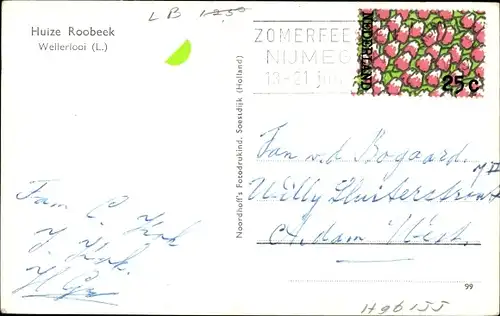 LB 1250
Huize Roobeek
Wellerlooi (L.)
ZOMERFEES
NIJMEG
13-21 jul
NEDERLAND
25c
Noordhoff's Fotodrukind. Soestdijk (Holland)
Fam v.d. Bogaard.
Willy Sluiterstraat
A.dam West.
Fam C.
J.
99
H96155